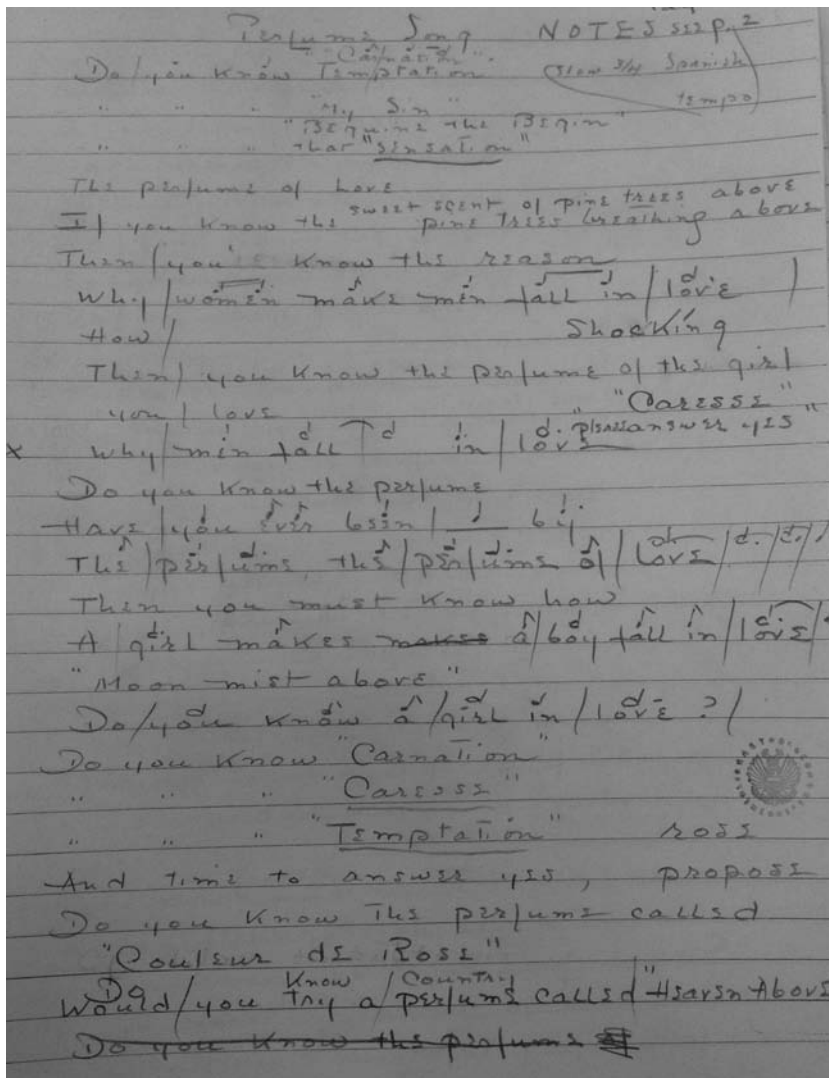 Perfume Song NOTES see p. 2
"Carnation"
Do/you know Temptation (Slow 3/4 Spanish
tempo)
" " " "My Sin"
"Beguine the Begin"
" " " that "sensation"
The perfume of Love
sweet scent of pine trees above
If you know the pine trees breathing above
Then/you'll know the reason
Why/women make men fall in/love /
How/ Shocking
Then/you know the perfume of the girl
you/love "Caresse"
x Why/men fall in/love "please answer yes"
Do you know the perfume
Have/you ever been/ by
The/per/fume, the/per/fume of/Love/
Then you must know how
A/girl makes makes a/boy fall in/love/
"Moon-mist above"
Do/you know a/girl in/love?/
Do you know "Carnation"
" " " "Caresse"
" " " "Temptation" rose
And time to answer yes, propose
Do you know The perfume called
"Couleur de Rose"
Do Know Country
Would/you try a/perfume called "Heaven Above
Do you know the perfume